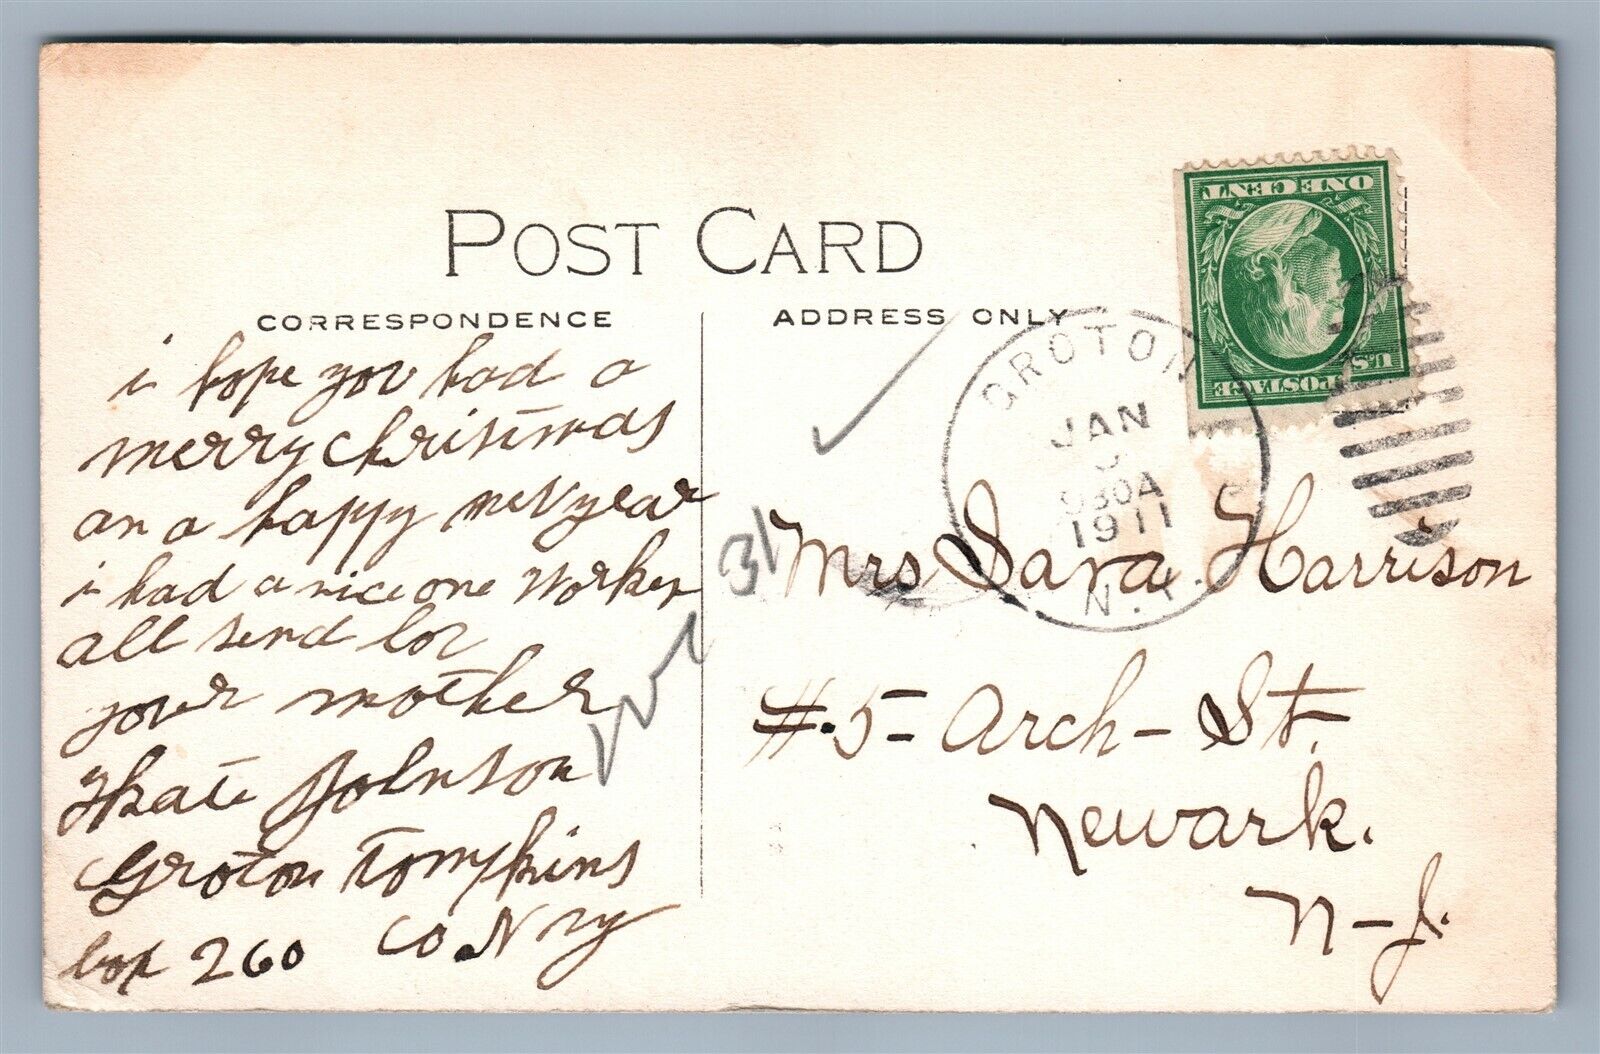 POST CARD
CORRESPONDENCE
ADDRESS ONLY
i hope you had a
merry christmas
an a happy new year
i had a nice one
all send lov
your mother
Johnson
Groton Tompkins
box 260 co N ny
31
ONE CENT
U.S. POSTAGE
GROTON
JAN
930A
1911
N.Y.
Mrs Sara Harrison
#.5- Arch- St.
Newark.
N-J.